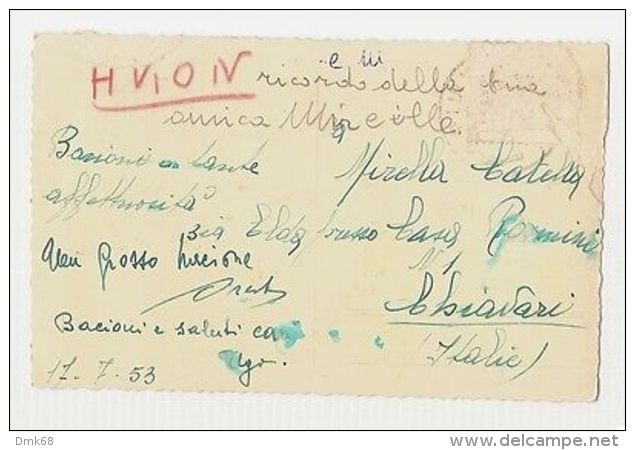 AVION
ricordo della tua
amica Mirella.
Bacioni con tante
affettuosità
Mirella
Elda
Casa
N. 1
Chiavari
(Italie)
Un grosso bacione
Bacioni e saluti cari
Ugo.
17. 7. 53
Dmk68
delcampe.net